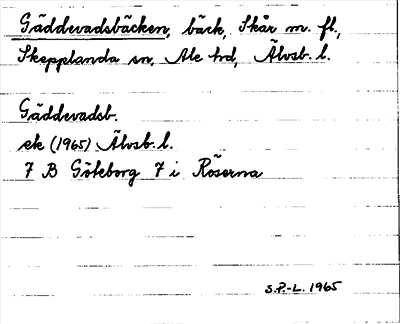 Gäddevadsbäcken, bäck, Skår m. fl.,
Skepplanda sn, Ale hd, Älvsb. l.
Gäddevadsb.
ek (1965) Älvsb. l.
7 B Göteborg 7 i Röserna
S.P.-L. 1965